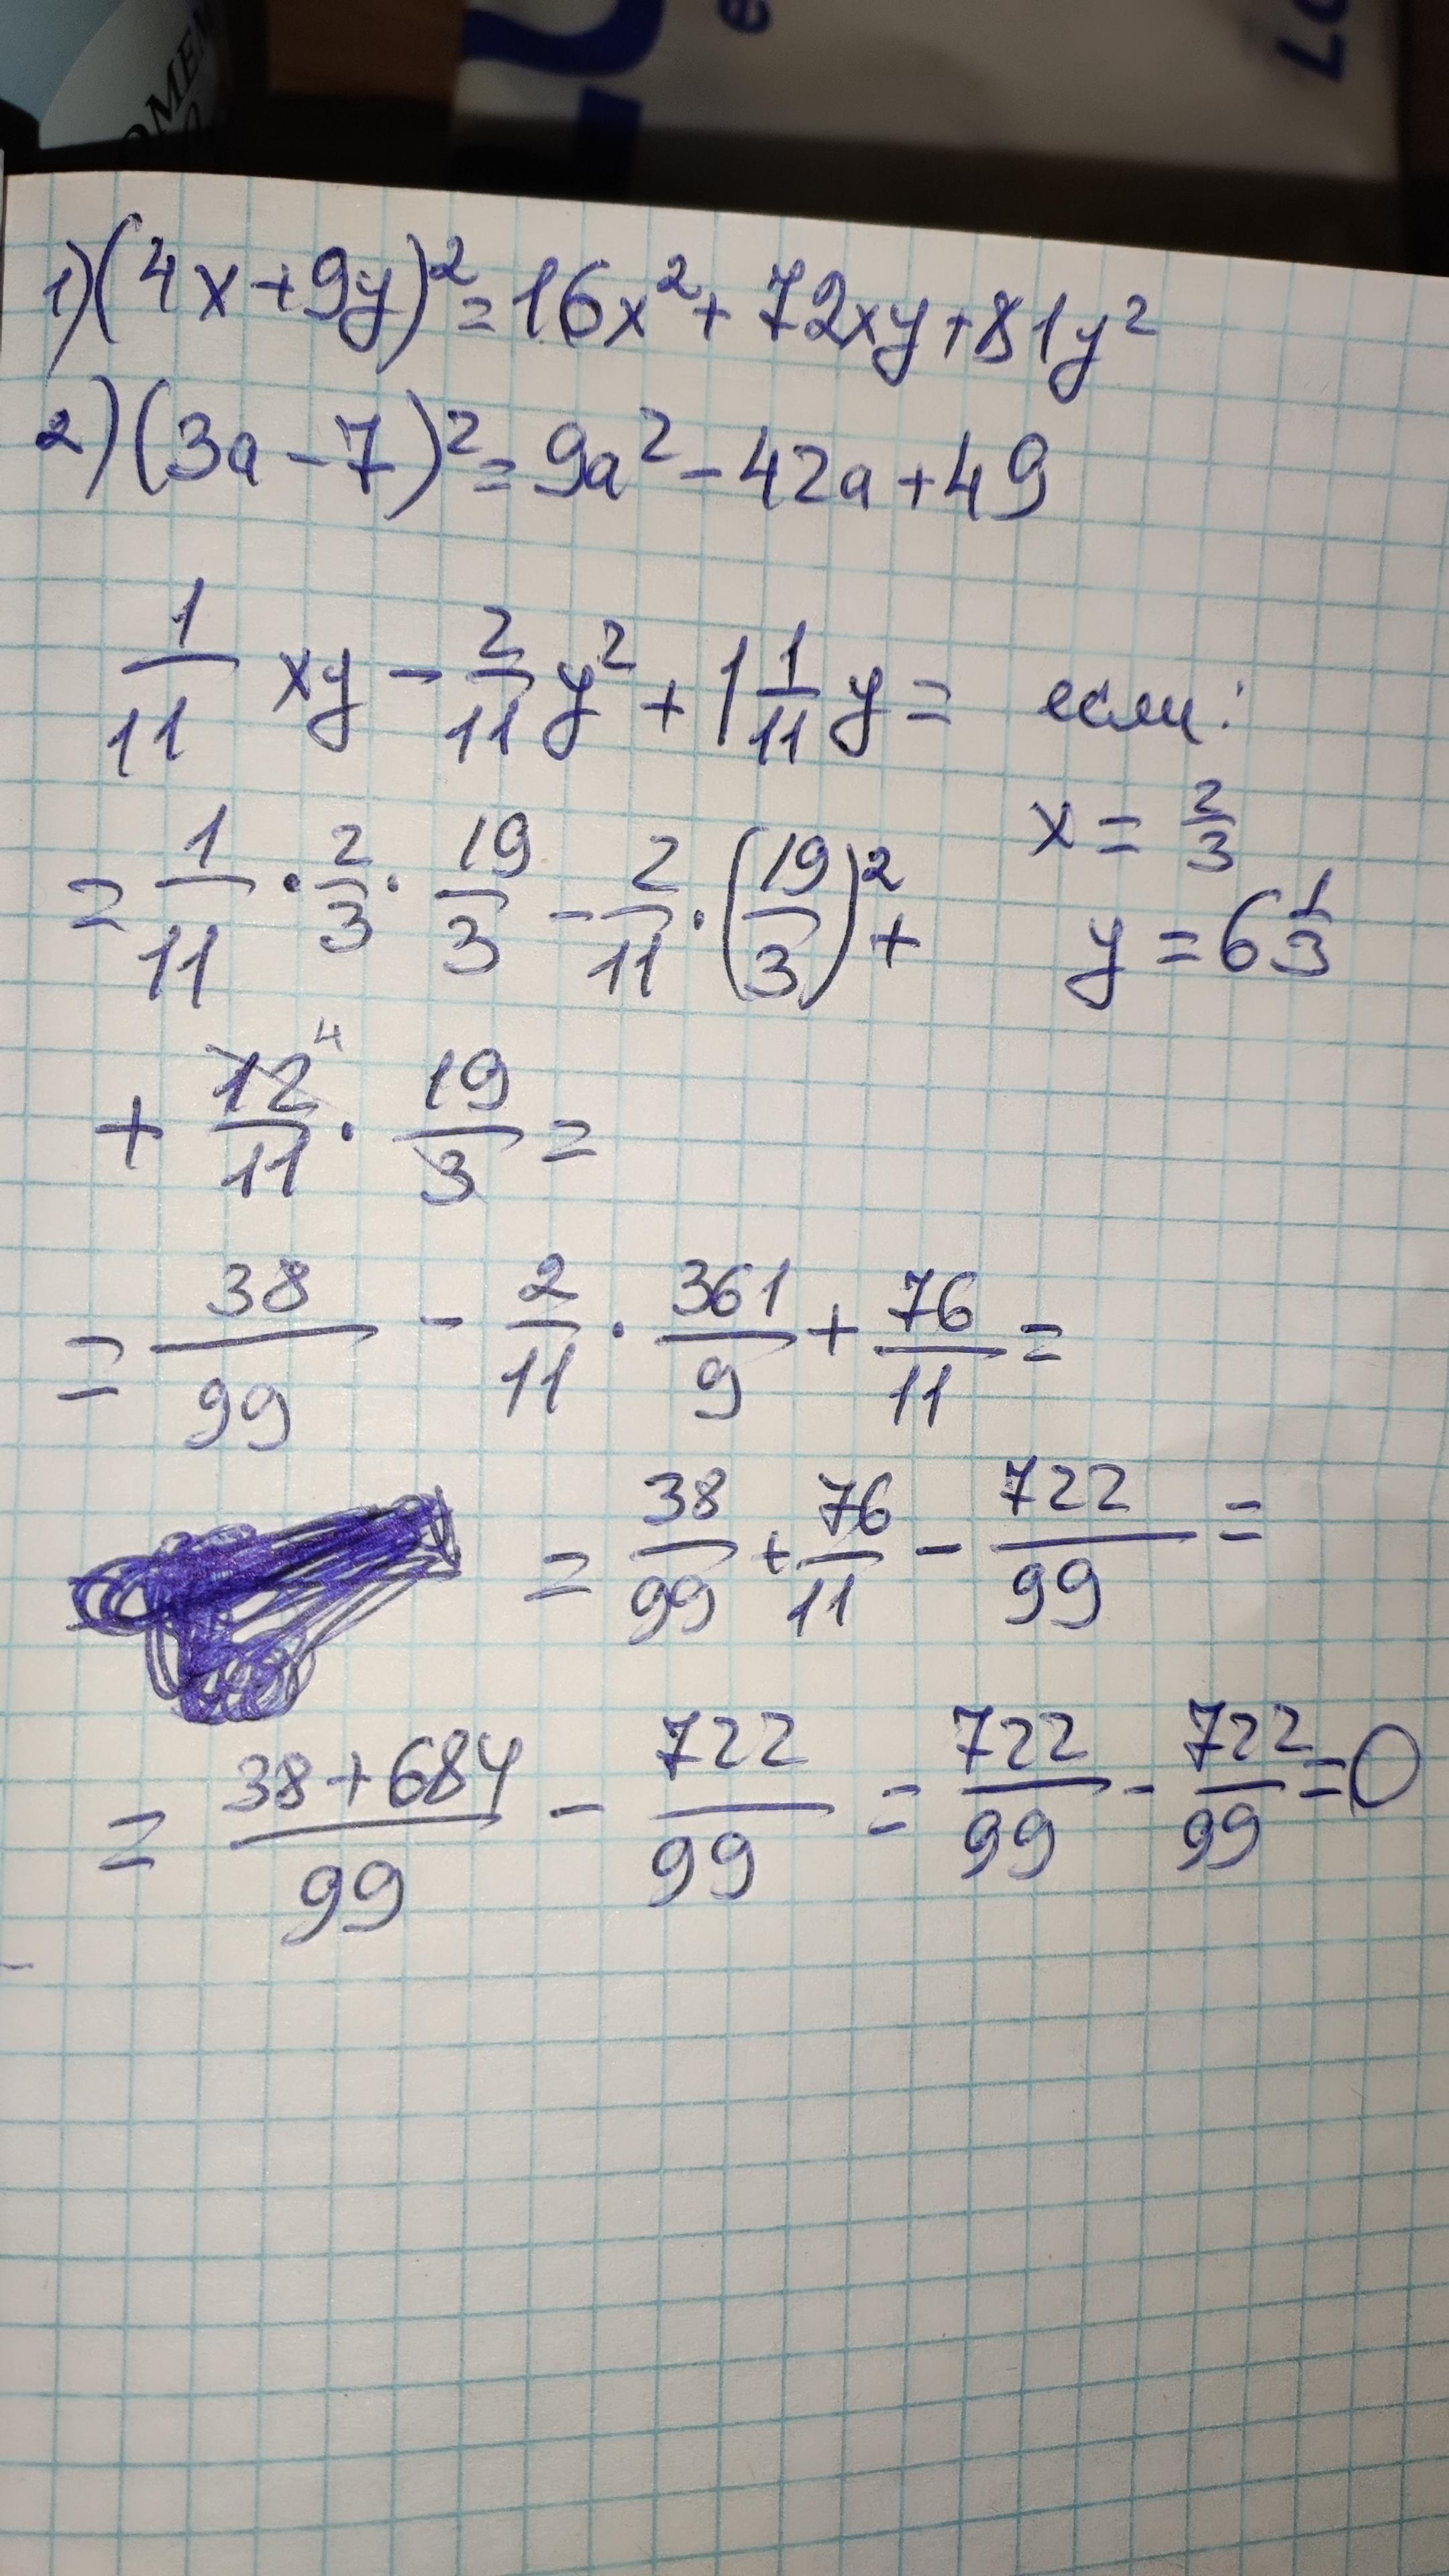 OMEN
e
Lo
1) (4x+9y)²=16x²+72xy+81y²
2) (3a-7)²=9a²-42a+49
1/11 xy - 2/11 y² + 1 1/11 y = если:
x = 2/3
y = 6 1/3
= 1/11 · 2/3 · 19/3 - 2/11 · (19/3)² +
+ 12/11 · 19/3 = 4
= 38/99 - 2/11 · 361/9 + 76/11 =
= 38/99 + 76/11 - 722/99 =
= 38+684/99 - 722/99 = 722/99 - 722/99 = 0